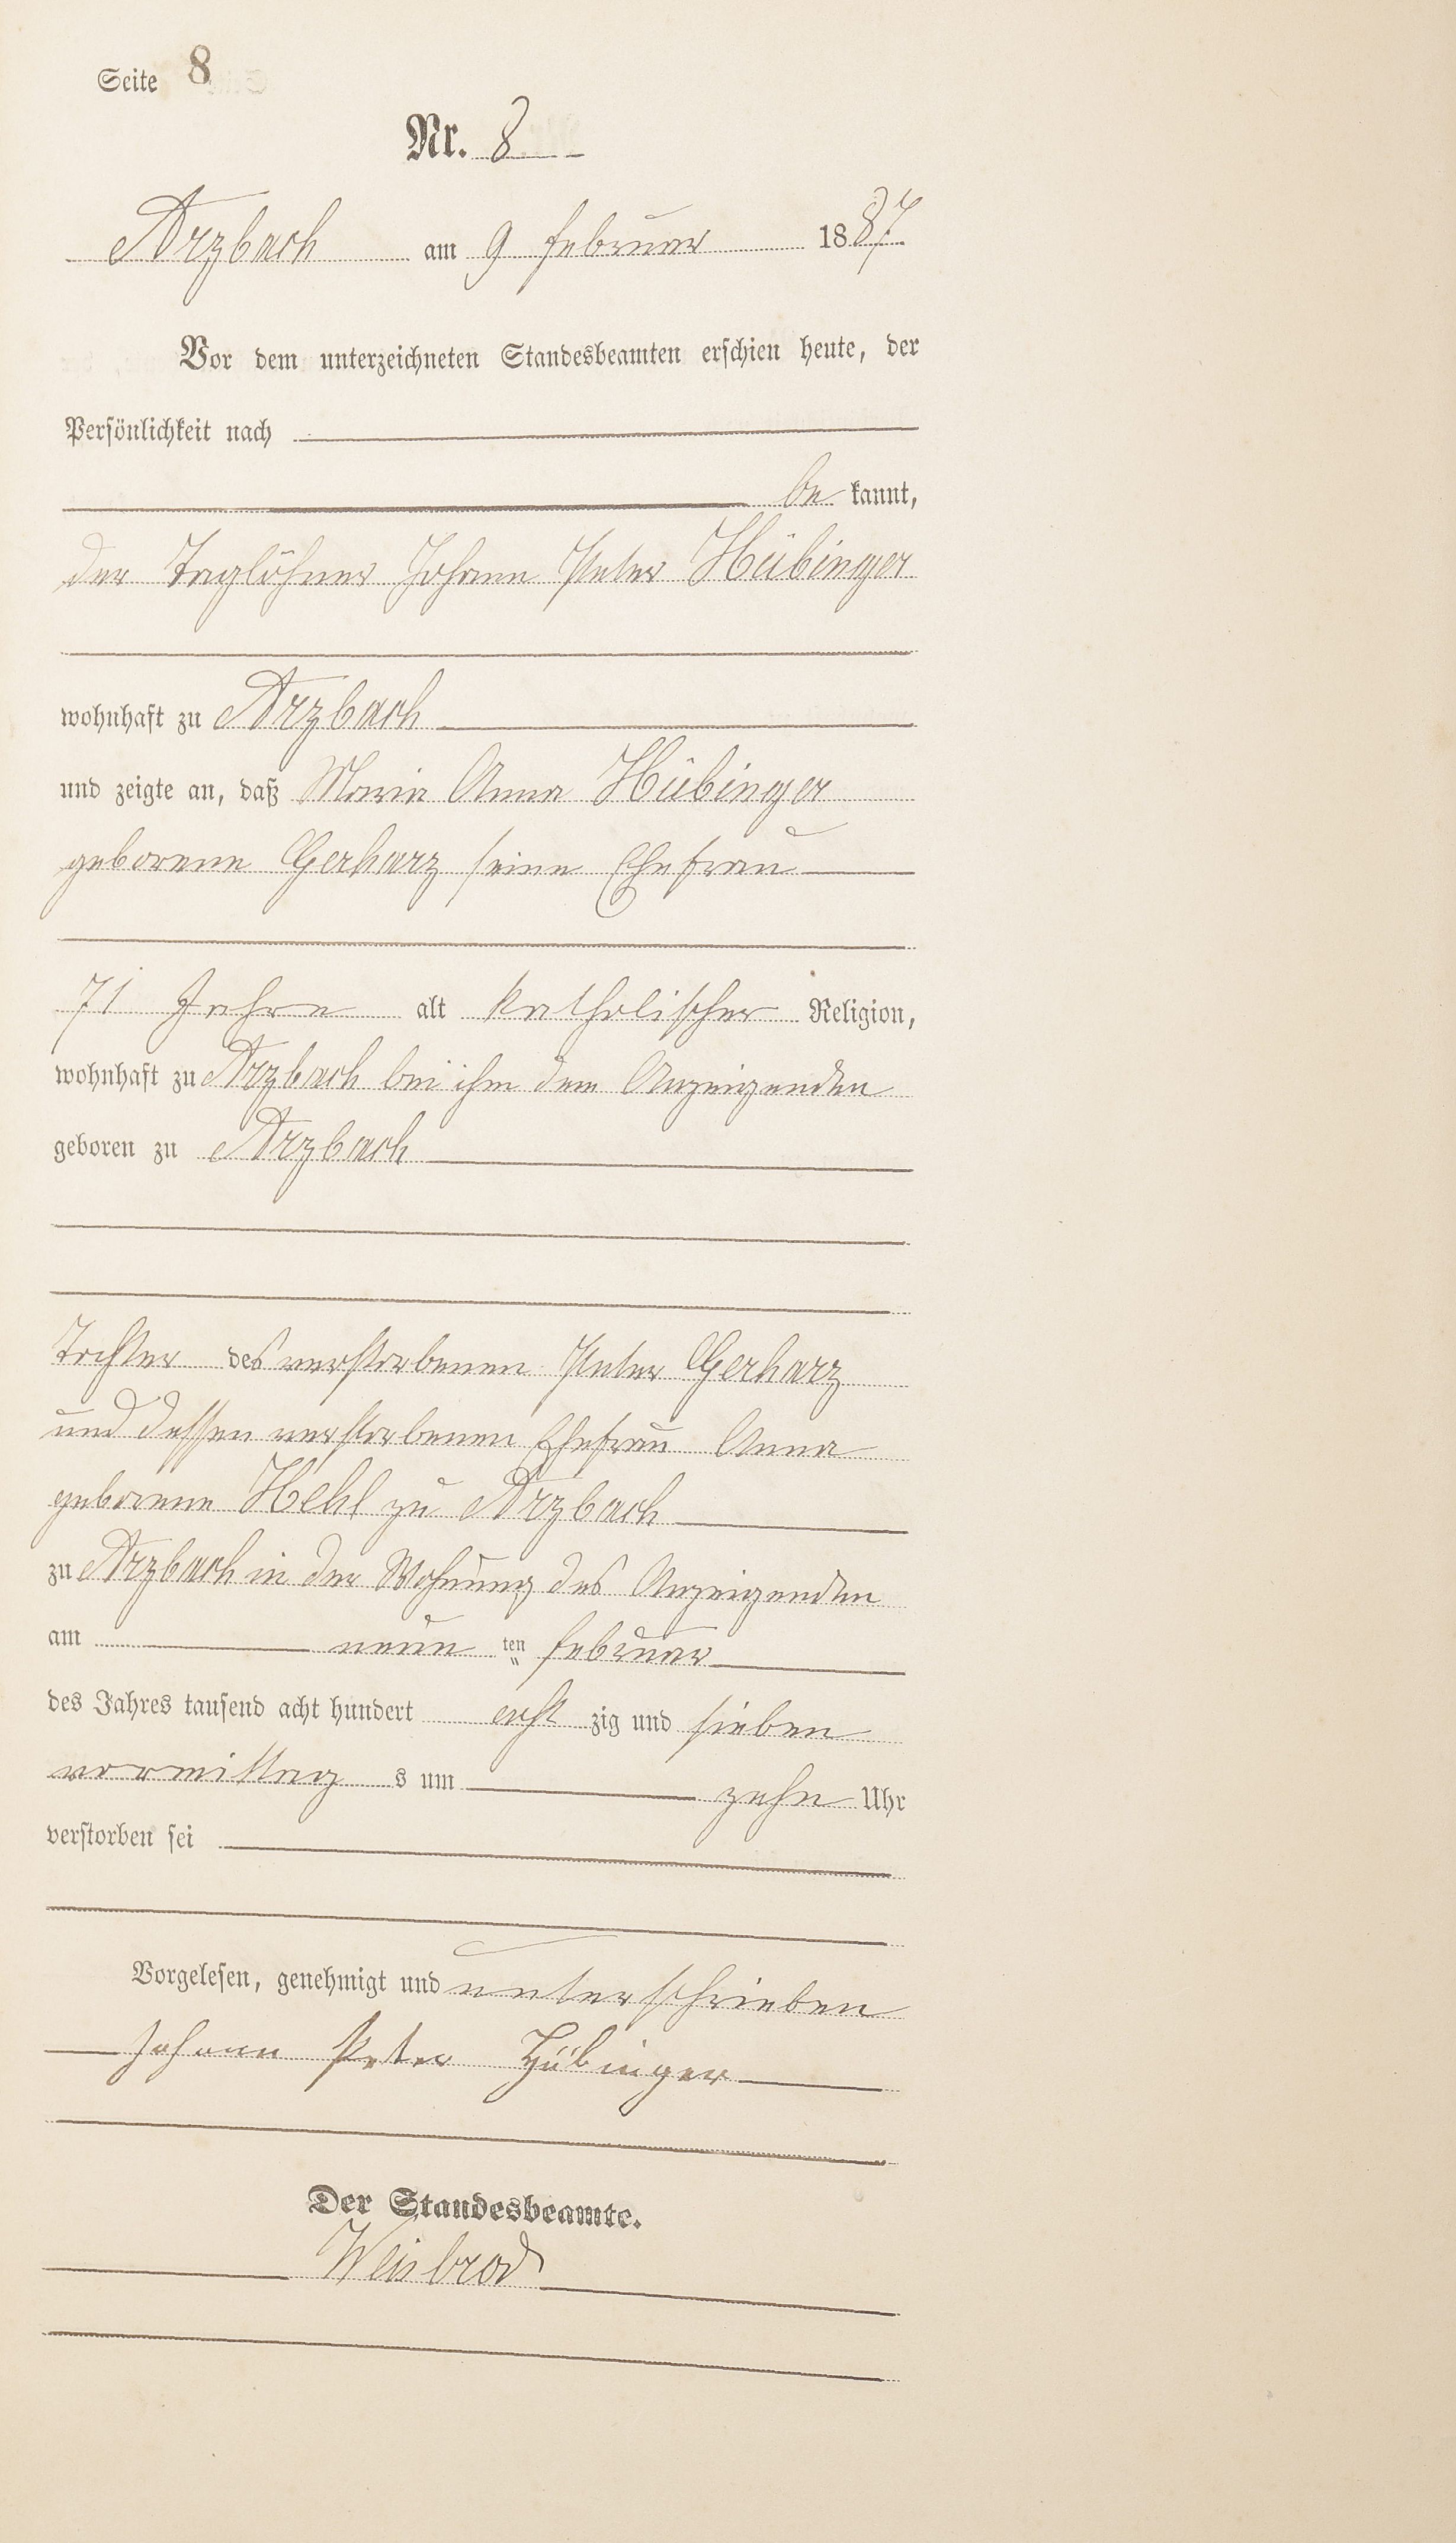 Seite 8
Nr. 8
Arzbach am 9 Februar 1887
Vor dem unterzeichneten Standesbeamten erschien heute, der
Persönlichkeit nach
be kannt,
der Taglöhner Johann Peter Hübinger
wohnhaft zu Arzbach
und zeigte an, daß Maria Anna Hübinger
geborene Gerharz seine Ehefrau
71 Jahre alt katholischer Religion,
wohnhaft zu Arzbach bei ihm dem Anzeigenden
geboren zu Arzbach
Tochter des verstorbenen Peter Gerharz
und dessen verstorbenen Ehefrau Anna
geborene Hehl zu Arzbach
zu Arzbach in der Wohnung des Anzeigenden
am neun ten Februar
des Jahres tausend acht hundert acht zig und sieben
vormittag s um zehn Uhr
verstorben sei
Vorgelesen, genehmigt und unterschrieben
Johann Peter Hübinger
Der Standesbeamte.
Weisbrod